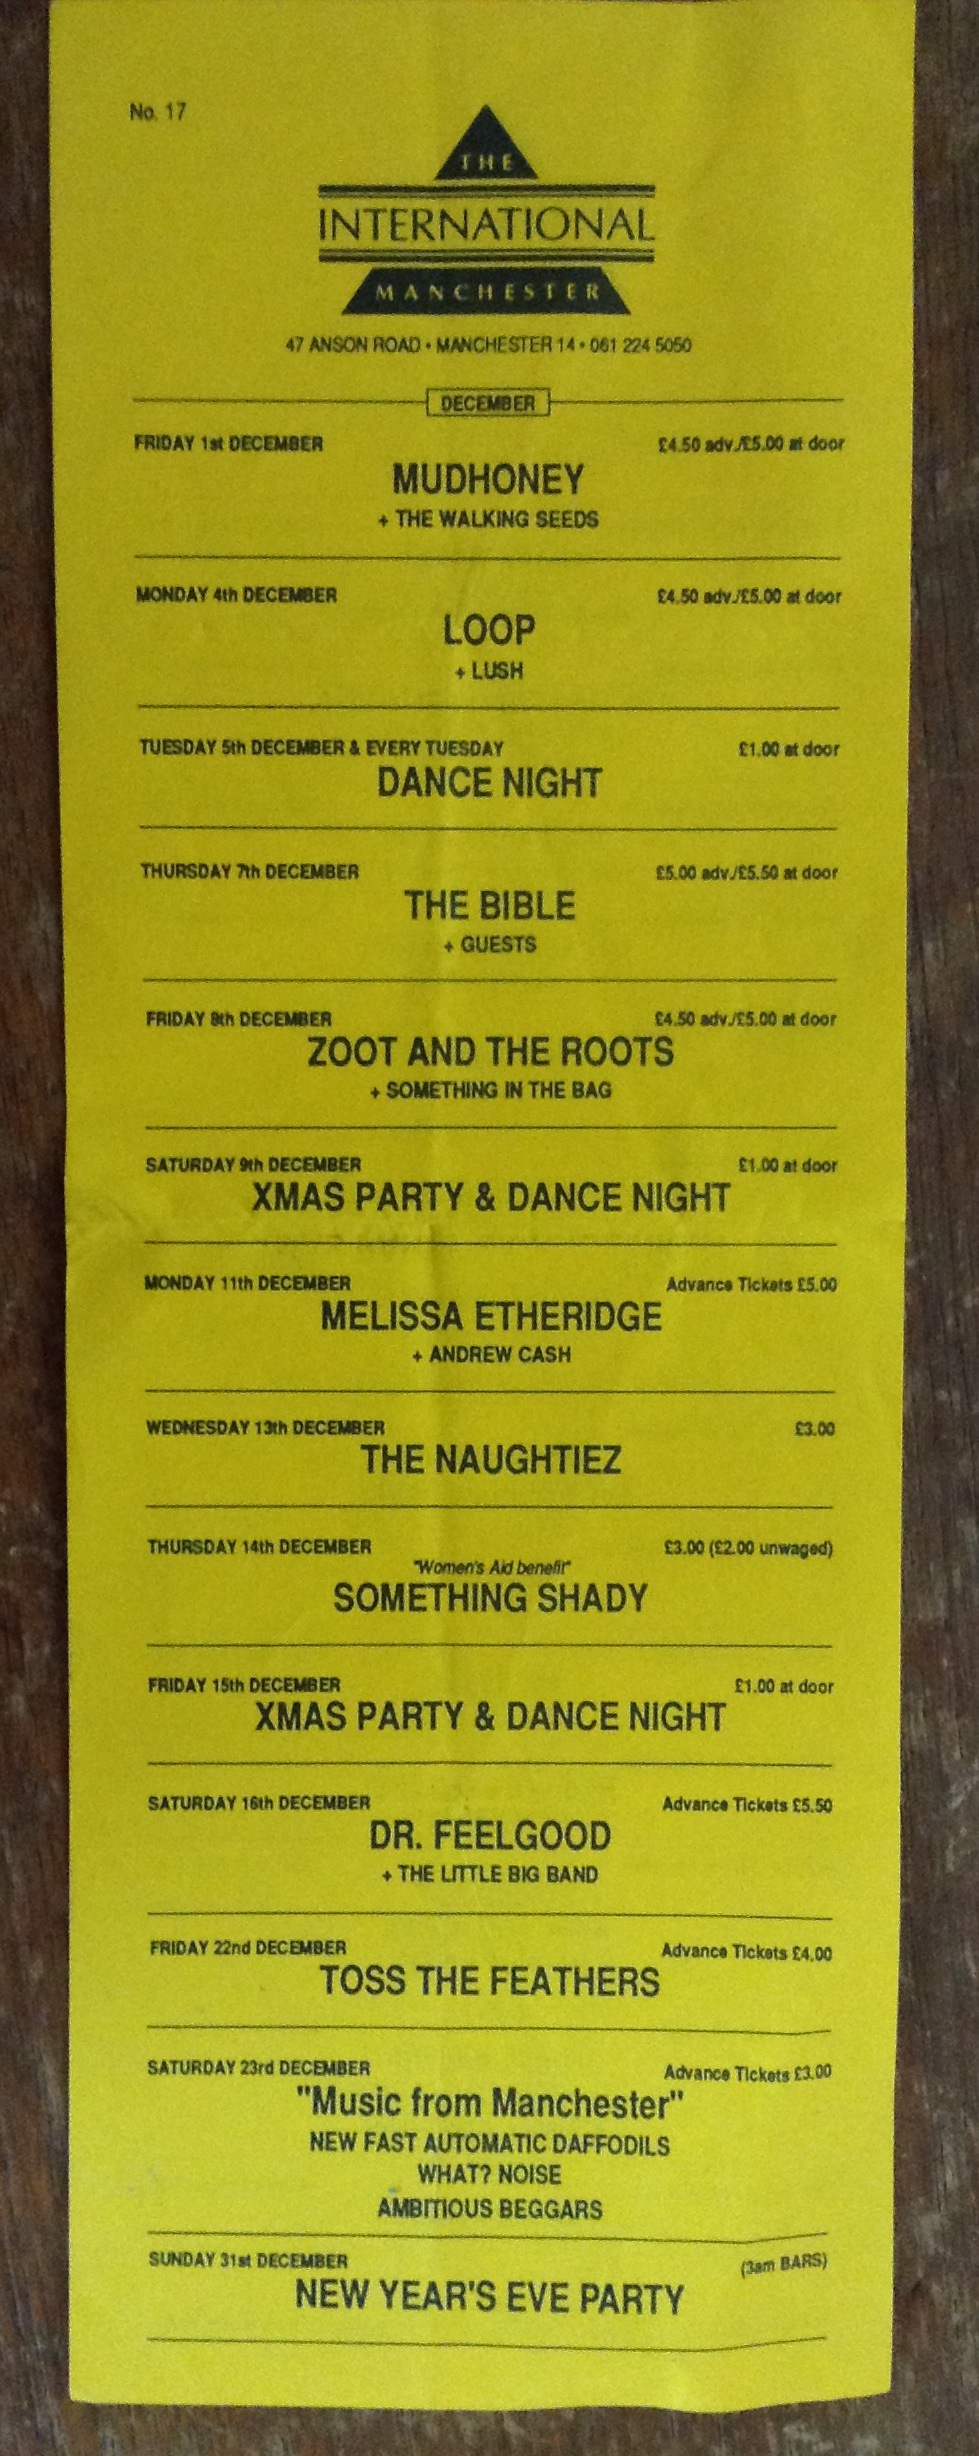 No. 17
THE
INTERNATIONAL
MANCHESTER
47 ANSON ROAD • MANCHESTER 14 • 061 224 5050
DECEMBER
FRIDAY 1st DECEMBER £4.50 adv./£5.00 at door
MUDHONEY
+ THE WALKING SEEDS
MONDAY 4th DECEMBER £4.50 adv./£5.00 at door
LOOP
+ LUSH
TUESDAY 5th DECEMBER & EVERY TUESDAY £1.00 at door
DANCE NIGHT
THURSDAY 7th DECEMBER £5.00 adv./£5.50 at door
THE BIBLE
+ GUESTS
FRIDAY 8th DECEMBER £4.50 adv./£5.00 at door
ZOOT AND THE ROOTS
+ SOMETHING IN THE BAG
SATURDAY 9th DECEMBER £1.00 at door
XMAS PARTY & DANCE NIGHT
MONDAY 11th DECEMBER Advance Tickets £5.00
MELISSA ETHERIDGE
+ ANDREW CASH
WEDNESDAY 13th DECEMBER £3.00
THE NAUGHTIEZ
THURSDAY 14th DECEMBER £3.00 (£2.00 unwaged)
"Women's Aid benefit"
SOMETHING SHADY
FRIDAY 15th DECEMBER £1.00 at door
XMAS PARTY & DANCE NIGHT
SATURDAY 16th DECEMBER Advance Tickets £5.50
DR. FEELGOOD
+ THE LITTLE BIG BAND
FRIDAY 22nd DECEMBER Advance Tickets £4.00
TOSS THE FEATHERS
SATURDAY 23rd DECEMBER Advance Tickets £3.00
"Music from Manchester"
NEW FAST AUTOMATIC DAFFODILS
WHAT? NOISE
AMBITIOUS BEGGARS
SUNDAY 31st DECEMBER (3am BARS)
NEW YEAR'S EVE PARTY